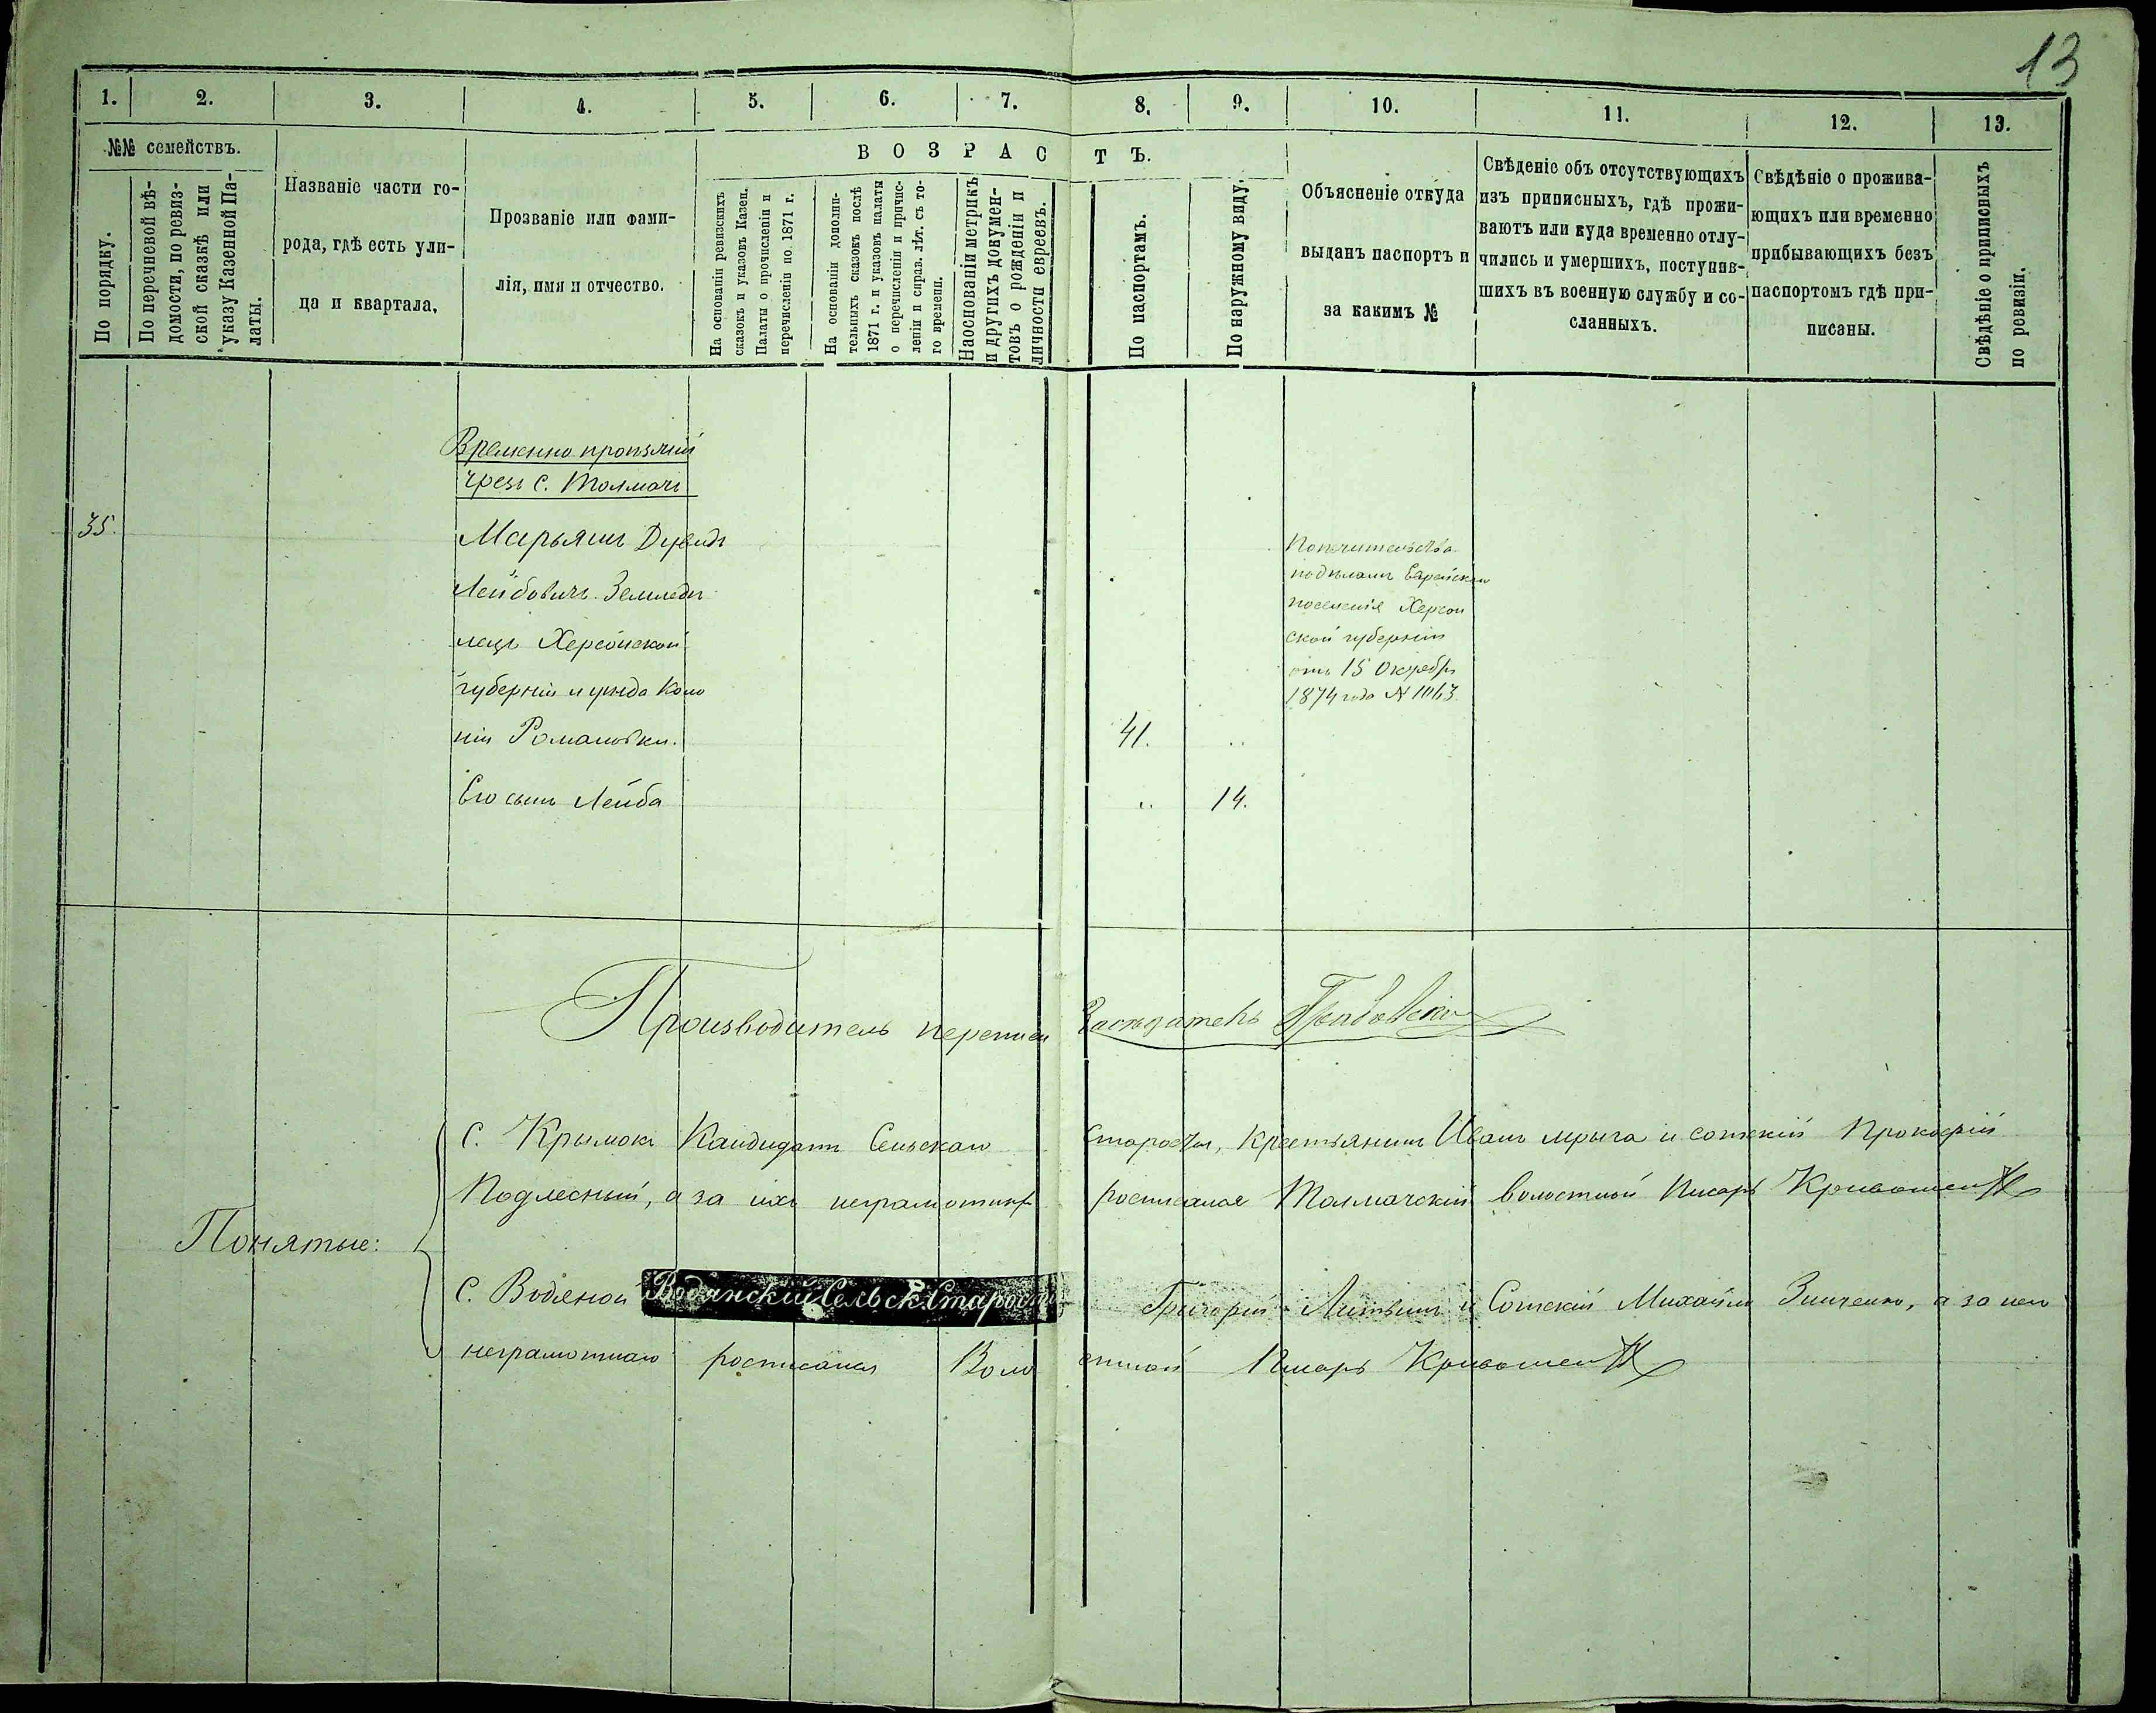 13
1. 2. 3. 4. 5. 6. 7. 8. 9. 10. 11. 12. 13.
№№ семействъ.
По порядку.
По перечневой вѣ-
домости, по ревиз-
ской сказкѣ или
указу Казенной Па-
латы.
Названіе части го-
рода, гдѣ есть ули-
ца и квартала,
Прозваніе или фами-
лія, имя и отчество.
ВОЗРАСТЪ.
На основаніи ревизскихъ
сказокъ и указовъ Казен.
Палаты о прочисленіи и
перечисленіи по 1871 г.
На основаніи дополни-
тельныхъ сказокъ послѣ
1871 г. и указовъ палаты
о перечисленіи и причис-
леніи и справ. лѣт. съ то-
го времени.
Наоснованіи метрикъ
и другихъ докумен-
товъ о рожденіи и
личности евреевъ.
По паспортамъ.
По наружному виду.
Объясненіе откуда
выданъ паспортъ и
за какимъ №
Свѣденіе объ отсутствующихъ
изъ приписныхъ, гдѣ прожи-
ваютъ или куда временно отлу-
чились и умершихъ, поступив-
шихъ въ военную службу и со-
сланныхъ.
Свѣдѣніе о прожива-
ющихъ или временно
прибывающихъ безъ
паспортомъ гдѣ при-
писаны.
Свѣдѣніе о приписныхъ
по ревизіи.
Временно
чрезъ с. Толмачъ
35.
Марьяшъ Дувидъ
Лейбовичъ Земледѣ
лецъ Херсонской
губерніи и уѣзда Коло
ніи Романовки. 41. "
Его сынъ Лейба " 14.
Попечительства
по дѣламъ Еврейскаго
поселенія Херсон
ской губерніи
отъ 15 Октября
1874 года № 1063.
Производитель переписи Засѣдатель
Понятые:
С. Крымока Кандидатъ Сельскаго Старосты, Крестьянинъ Иванъ и сотскій Прокофій
Подлесный, а за ихъ неграмотныхъ росписался Толмачскій волостной Писарь
С. Водяной Водянский Сельск. Староста Григорій Литвинъ и Сотскій Михайло Зинченко, а за него
неграмотнаго росписался Волостной Писарь